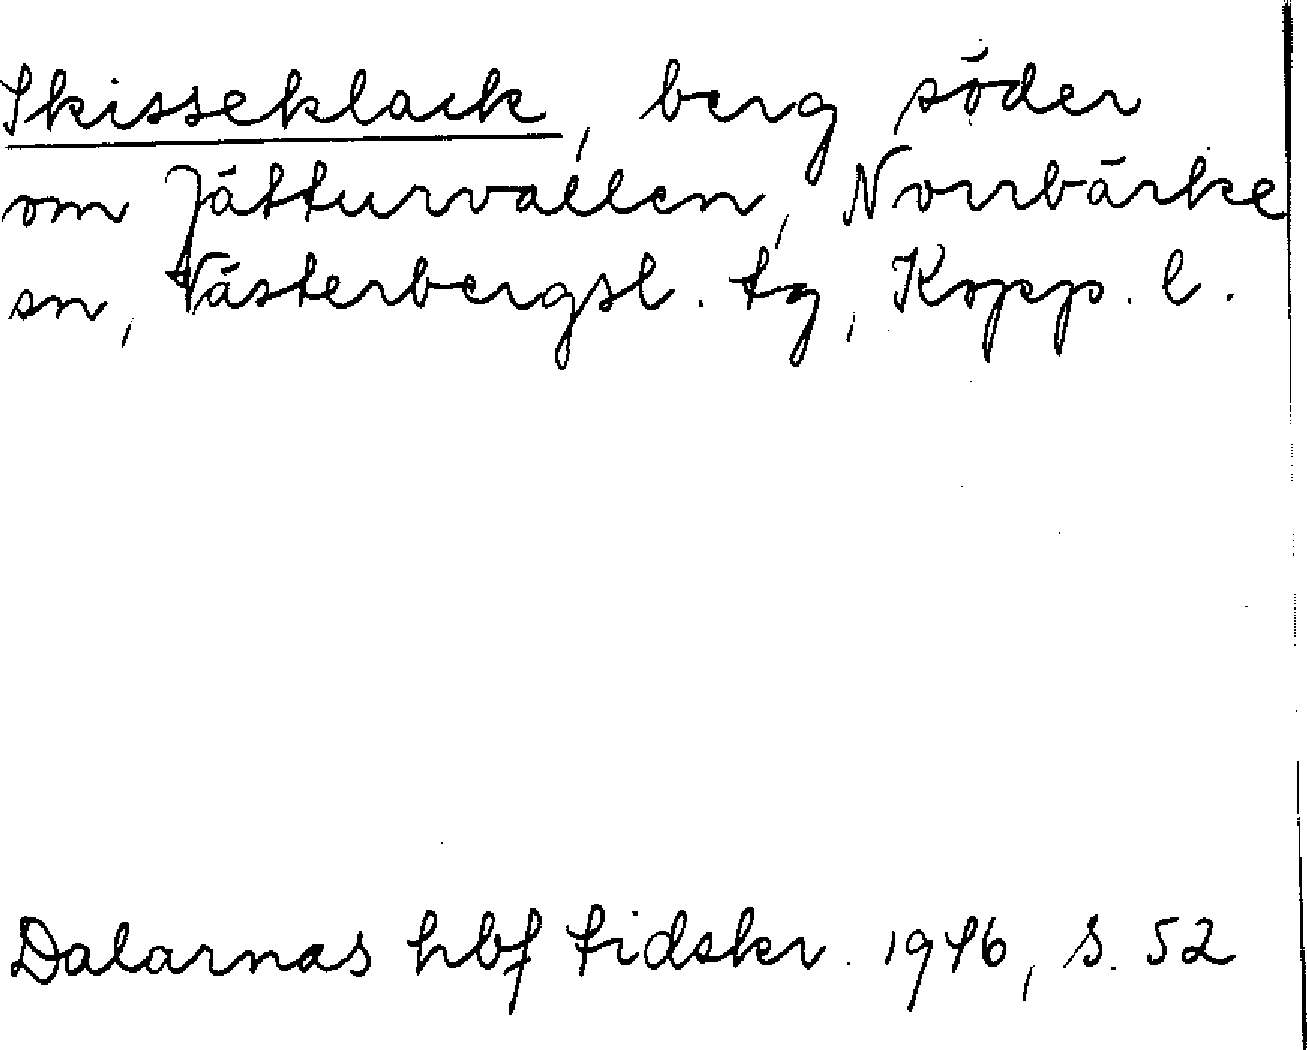 Skisseklack, berg söder
om Jätturvallen, Norrbärke
sn, Västerbergsl. fg, Kopp. l.
Dalarnas hbf tidskr. 1946, s. 52